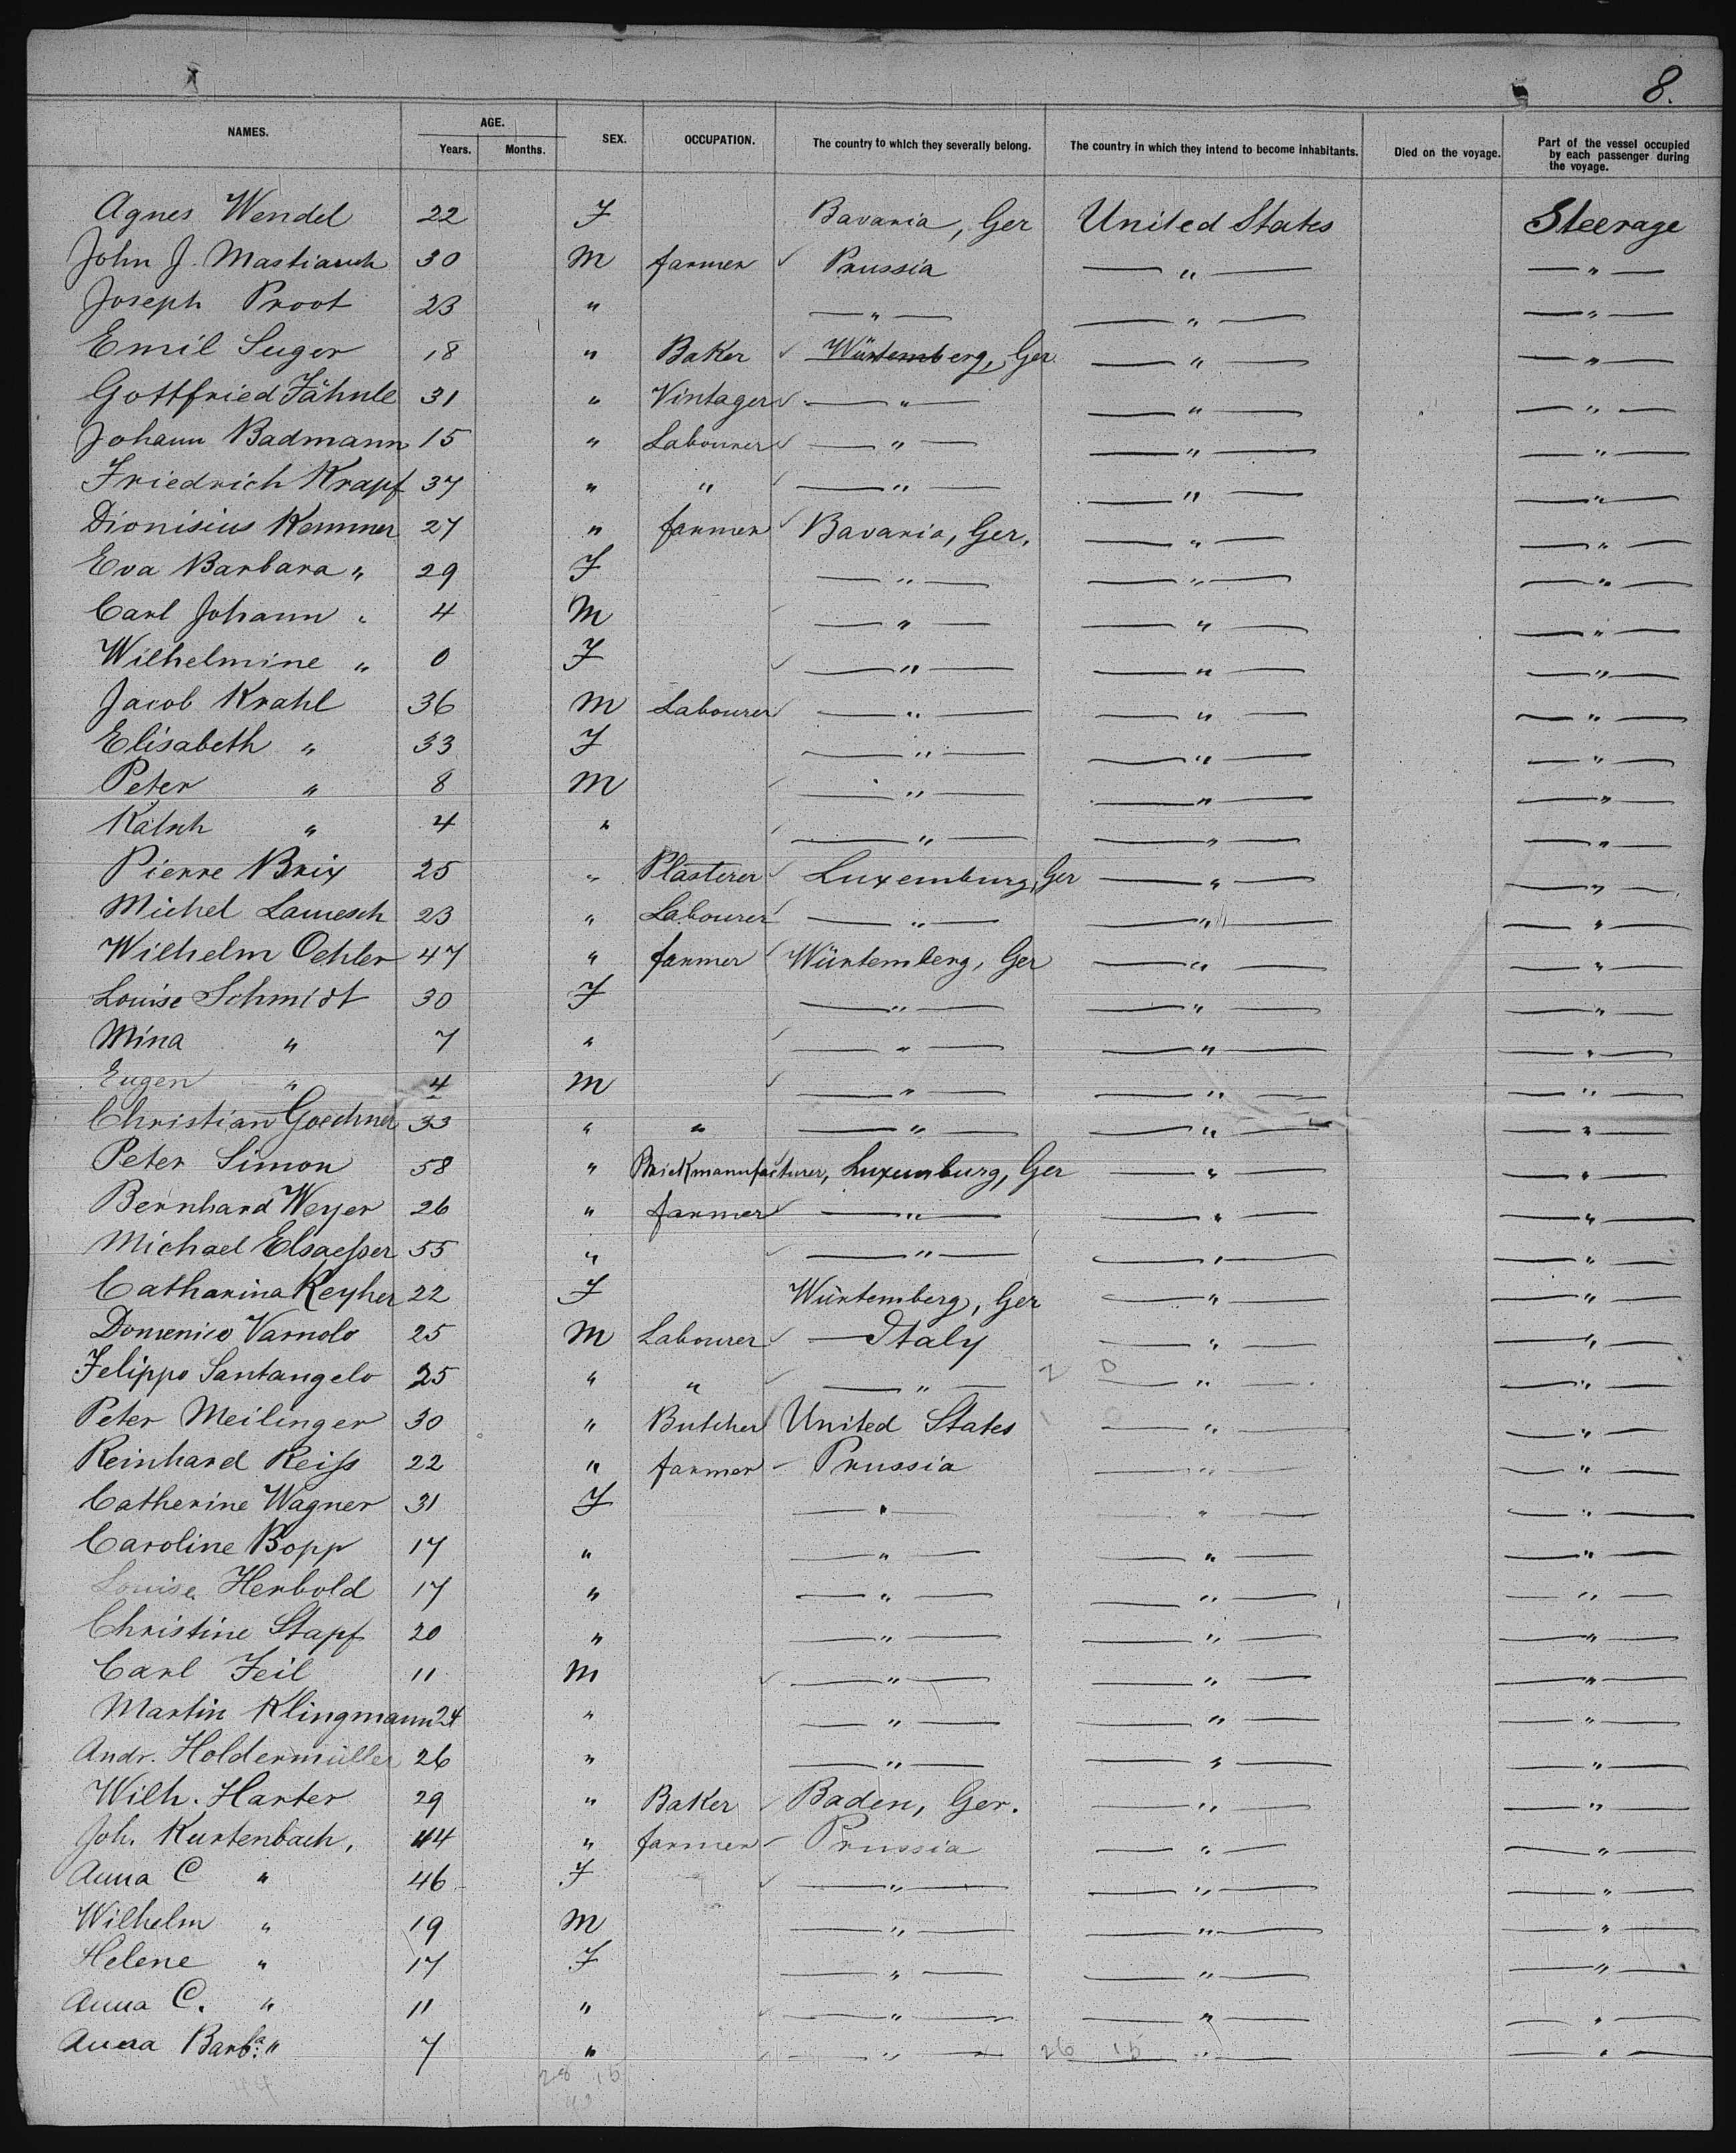 8.
NAMES. AGE. Years. Months. SEX. OCCUPATION. The country to which they severally belong. The country in which they intend to become inhabitants. Died on the voyage. Part of the vessel occupied by each passenger during the voyage.
Agnes Wendel 22 F Bavaria, Ger United States Steerage
John J. Mastiauch 30 M farmer ✓ Prussia — " — — " —
Joseph Proot 23 " — " — — " — — " —
Emil Suger 18 " Baker ✓ Würtemberg, Ger — " — — " —
Gottfried Fähnle 31 " Vintager ✓ — " — — " — — " —
Johann Badmann 15 " Labourer ✓ — " — — " — — " —
Friedrich Krapf 37 " " ✓ — " — — " — — " —
Dionisius Kemmer 27 " farmer ✓ Bavaria, Ger. — " — — " —
Eva Barbara " 29 F — " — — " — — " —
Carl Johann " 4 M ✓ — " — — " — — " —
Wilhelmine " 0 F ✓ — " — — " — — " —
Jacob Krahl 36 M Labourer ✓ — " — — " — — " —
Elisabeth " 33 F — " — — " — — " —
Peter " 8 M ✓ — " — — " — — " —
" 4 " ✓ — " — — " — — " —
Pierre Brix 25 " Plasterer ✓ Luxemburg, Ger — " — — " —
Michel Lamesch 23 " Labourer ✓ — " — — " — — " —
Wilhelm Oehler 47 " farmer ✓ Würtemberg, Ger — " — — " —
Louise Schmidt 30 F — " — — " — — " —
Mina " 7 " ✓ — " — — " — — " —
Eugen " 4 M ✓ — " — — " — — " —
Christian Goechner 33 " " — " — — " — — " —
Peter Simon 58 " Brickmanufacturer, Luxemburg, Ger — " — — " —
Bernhard Weyer 26 " farmer ✓ — " — — " — — " —
Michael Elsaesser 55 " ✓ — " — — " — — " —
Catharina Keyher 22 F Würtemberg, Ger — " — — " —
Domenico Varnolo 25 M Labourer ✓ — Italy — " — — " —
Felippo Santangelo 25 " " ✓ — " — 2 0 — " — — " —
Peter Meilinger 30 " Butcher ✓ United States — " — — " —
Reinhard Reiss 22 " farmer – Prussia — " — — " —
Catherine Wagner 31 F — " — — " — — " —
Caroline Bopp 17 " — " — — " — — " —
Louise Herbold 17 " — " — — " — — " —
Christine Stapf 20 " — " — — " — — " —
Carl Feil 11 M ✓ — " — — " — — " —
Martin Klingmann 24 " — " — — " — — " —
Andr. Holdermüller 26 " — " — — " — — " —
Wilh. Harter 29 " Baker ✓ Baden, Ger. — " — — " —
Joh. Kurtenbach, 44 " farmer – Prussia — " — — " —
Anna C " 46 F ✓ — " — — " — — " —
Wilhelm " 19 M — " — — " — — " —
Helene " 17 F — " — — " — — " —
Anna C. " 11 " ✓ — " — — " — — " —
Anna Barba. " 7 " ✓ — " — 26 15 — " — — " —
44 28 15